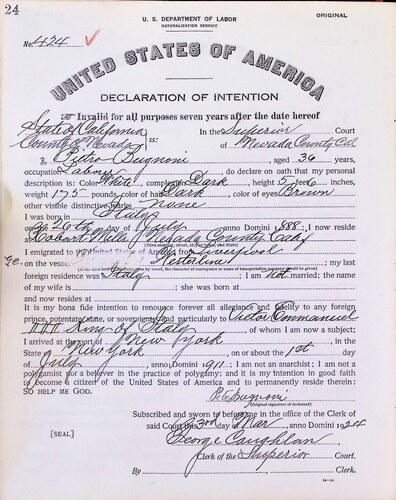 24
U. S. DEPARTMENT OF LABOR
NATURALIZATION SERVICE
ORIGINAL
No. 424
UNITED STATES OF AMERICA
DECLARATION OF INTENTION
Invalid for all purposes seven years after the date hereof
State of California
County of Nevada ss: In the Superior Court
of Nevada County Cal
I, Pietro Bugnoni, aged 36 years,
occupation Labor, do declare on oath that my personal
description is: Color White, complexion Dark, height 5 feet 6 inches,
weight 175 pounds, color of hair Dark, color of eyes Brown
other visible distinctive marks none
I was born in Italy
on the 26th day of July, anno Domini 1888; I now reside
at Hobart Mills Nevada County Calif
emigrated to the United States of America from Liverpool
on the vessel; my last
foreign residence was Italy; I am not married; the name
of my wife is; she was born at
and now resides at
It is my bona fide intention to renounce forever all allegiance and fidelity to any foreign
prince, potentate, state, or sovereignty, and particularly to Victor Emmanuel
III King of Italy, of whom I am now a subject;
I arrived at the port of New York, in the
State of New York, on or about the 1st day
of July, anno Domini 1911: I am not an anarchist; I am not a
polygamist nor a believer in the practice of polygamy; and it is my intention in good faith
to become a citizen of the United States of America and to permanently reside therein:
SO HELP ME GOD.
(Original signature of declarant)
Subscribed and sworn to before me in the office of the Clerk of
said Court this 3rd day of Mar, anno Domini 1924
[SEAL]
George Coughlan
Clerk of the Superior Court.
By, Clerk.